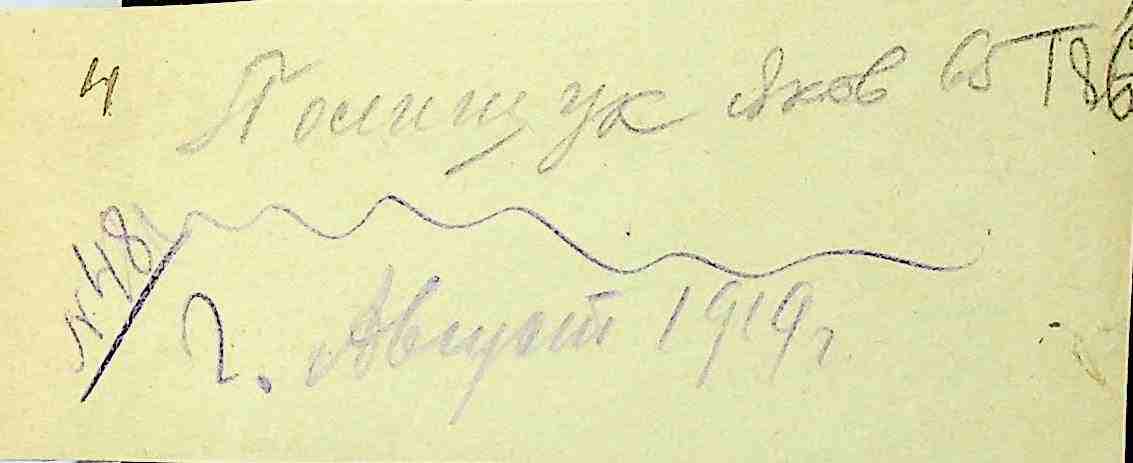 4 Полищук Яков 65 Т86
№ 481
2. Август 1919 г.